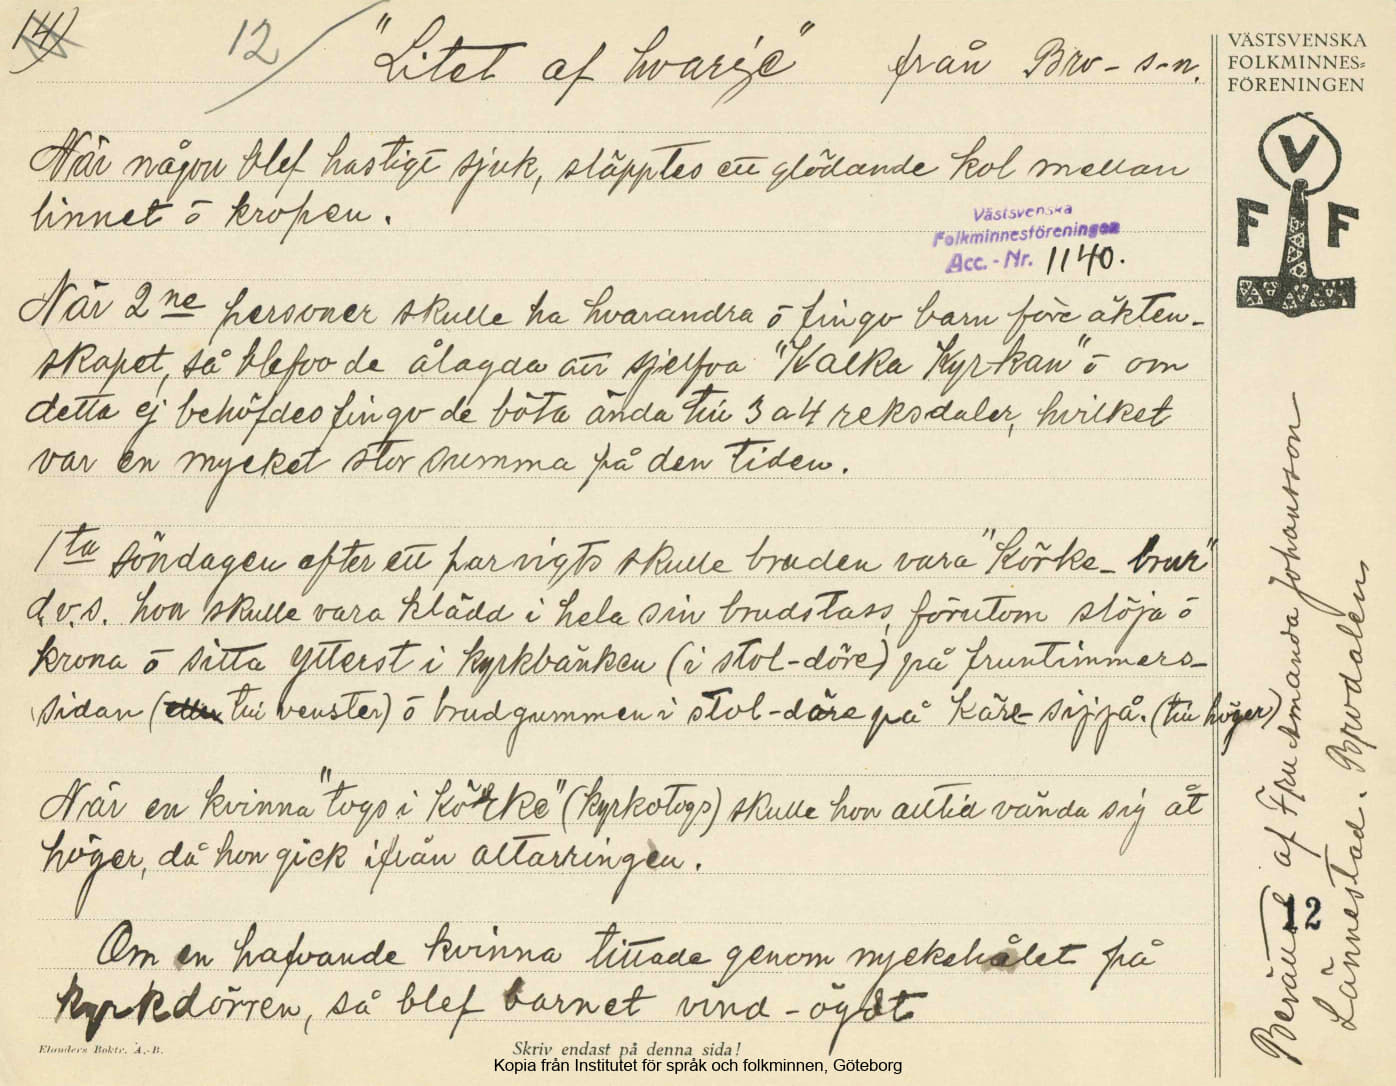 14)
12
"Litet af hvarje" från Bro-s-n.
När någon blef hastigt sjuk, släpptes ett glödande kol mellan
linnet ō kropen.
När 2ne personer skulle ha hvarandra ō fingo barn före äkten-
skapet, så blefvo de ålagda att sjelfva "Kalka Kyrkan" ō om
detta ej behöfdes fingo de böta ända till 3 a 4 reksdaler, hvilket
var en mycket stor summa på den tiden.
1ta söndagen efter ett par vigts skulle bruden vara "Körke-brur"
d.v.s. hon skulle vara klädd i hela sin brudstass, förutom slöja ō
krona ō sitta ytterst i kyrkbänken (i stol-döre) på fruntimmers-
sidan (till venster) ō brudgummen i stol-döre på Käre-sijjå. (till höger)
När en kvinna "togs i Körke" (kyrkotogs) skulle hon alltid vända sig åt
höger, då hon gick ifrån altarringen.
Om en hafvande kvinna tittade genom nyckehålet på
kyrkdörren, så blef barnet vind-ögdt
Västsvenska
Folkminnesföreningen
Acc.-Nr. 1140.
VÄSTSVENSKA
FOLKMINNES=
FÖRENINGEN
V
F F
Berättat af Fru Amanda Johansson
Lännestad. Brodalen.
12
Elanders Boktr. A.-B.
Skriv endast på denna sida!
Kopia från Institutet för språk och folkminnen, Göteborg